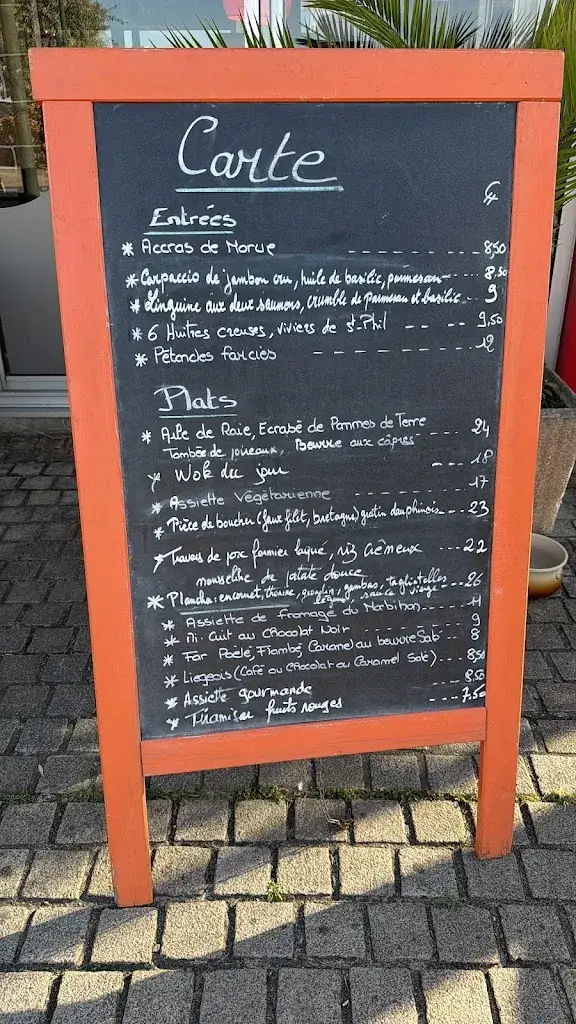 Carte
€
Entrées
* Accras de Morue ---------- 8,50
* Carpaccio de jambon cru, huile de basilic, parmesan --- 8,50
* Linguine aux deux saumons, crumble de parmesan et basilic - 9
* 6 Huîtres creuses, viviers de St-Phil -- -- 9,50
* Pétoncles farcies ---------- 12
Plats
* Aile de Raie, Ecrasé de Pommes de Terre 24
Tombée de poireaux, Beurre aux câpres
* Wok du jour --- 18
* Assiette Végétarienne ---------- 17
* Pièce du boucher (faux filet, bretagne) gratin dauphinois --- 23
* Travers de porc fermier laqué, riz crémeux --- 22
mousseline de patate douce
* Plancha: encornet, gambas, tagliatelles --- 26
légume sauce vierge
* Assiette de fromage du Morbihan --- 11
* Mi-Cuit au Chocolat Noir --- 9
* Far Poêlé, Flambé, Caramel au beurre salé -- 8
* Liégeois (Café ou Chocolat ou Caramel Salé) --- 8,50
* Assiette gourmande --- 8,50
* Tiramisu fruits rouges --- 7,50